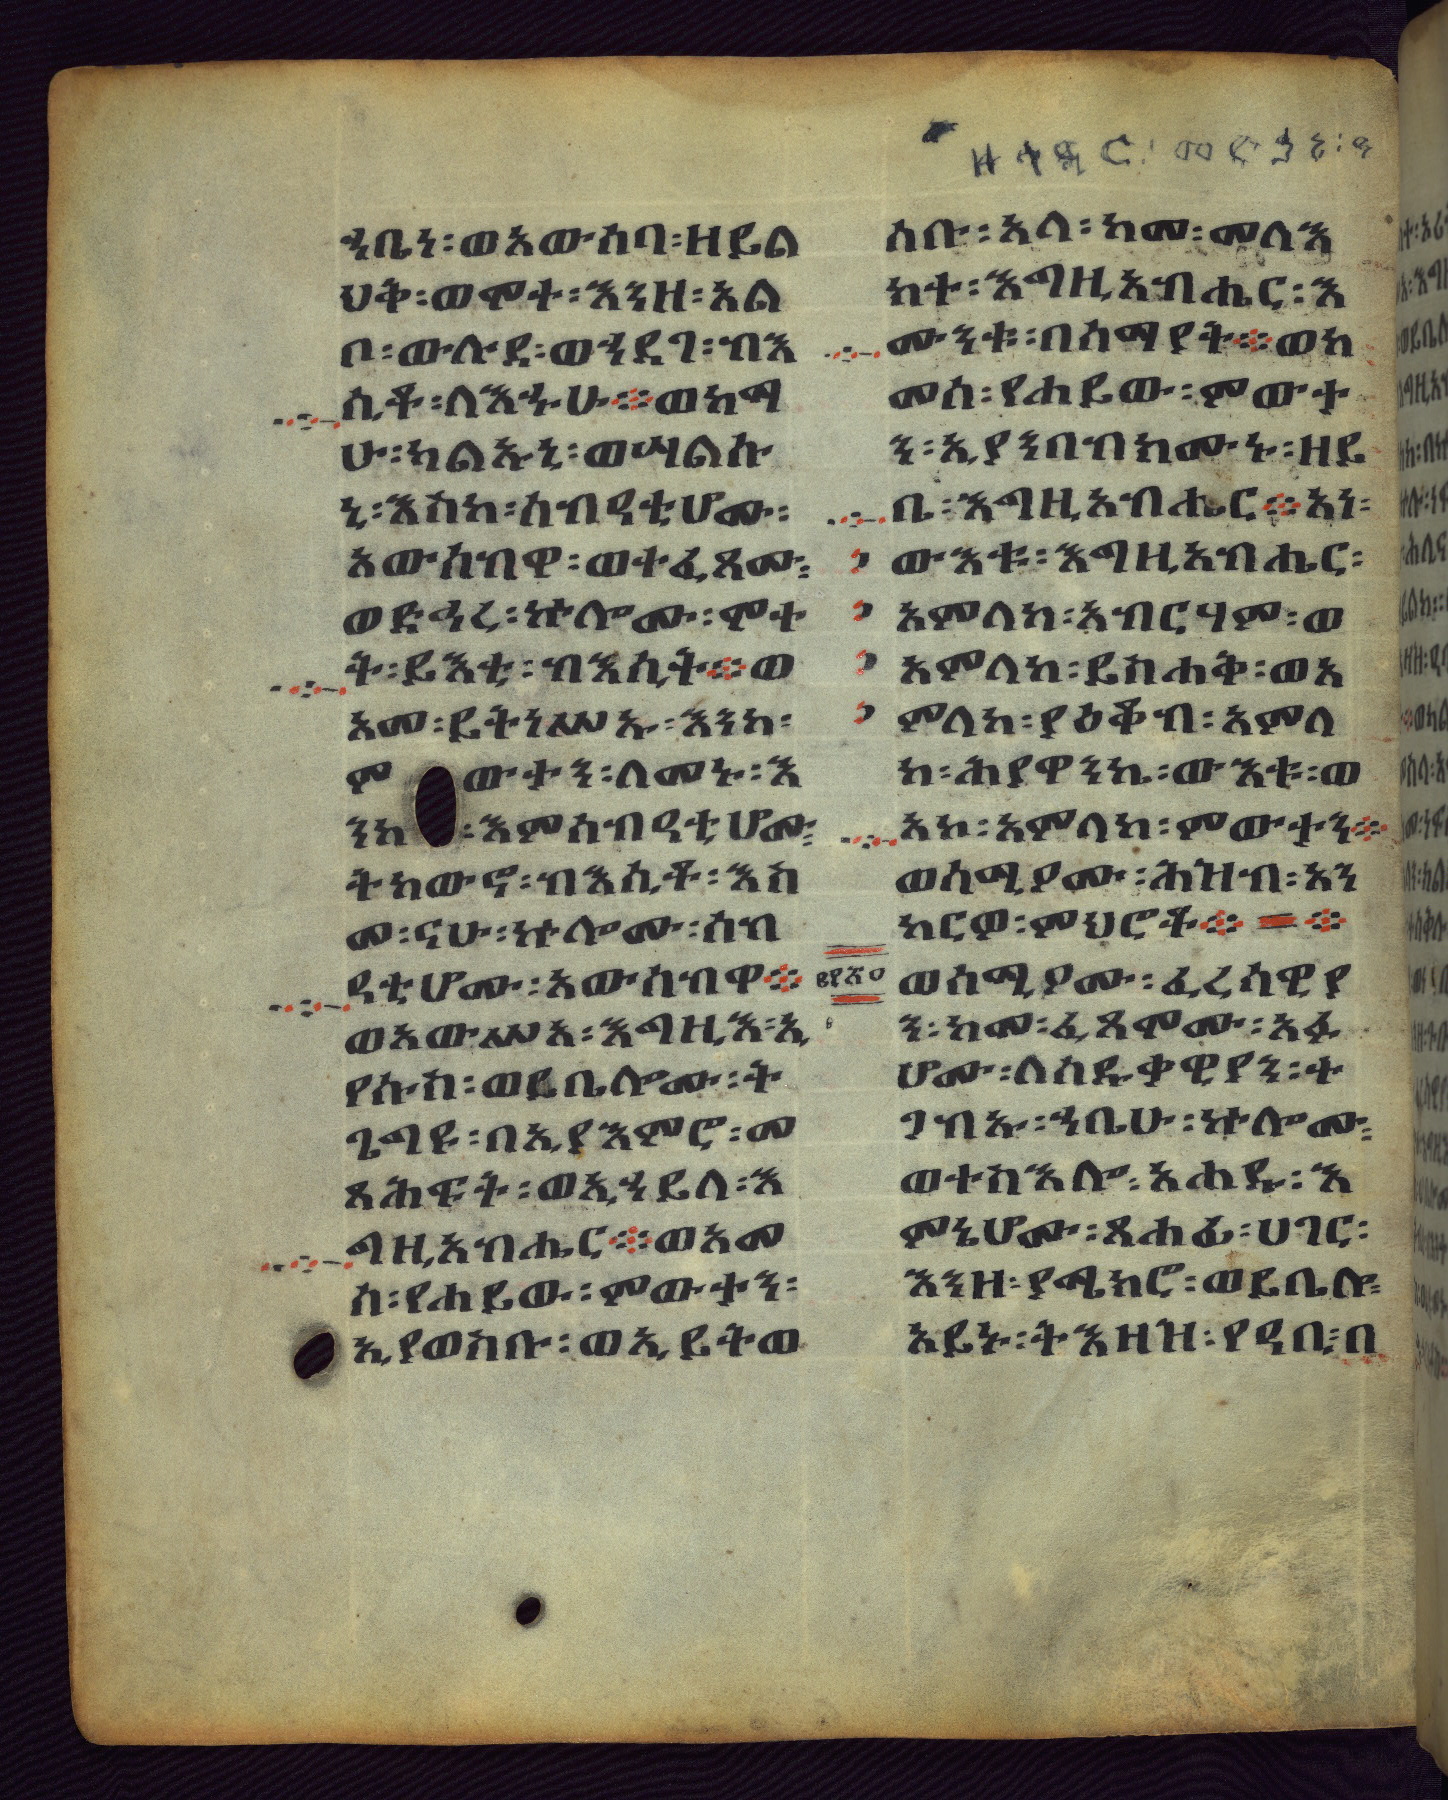 ኀቤነ፡ወአውሰባ፡ዘይል
ህቅ፡ወሞተ፡እንዘ፡አል
ቦ፡ውሉደ፡ወኀደገ፡ብእ
ሲቶ፡ለእኁሁ፨ወከማ
ሁ፡ካልኡኒ፡ወሣልሱ
ኒ፡እስከ፡ሰብዓቲሆሙ፡
አውሰብዋ፡ወተፈጸሙ፡
ወድኃረ፡ኵሎሙ፡ሞተ
ት፡ይእቲ፡ብእሲት፨ወ
አመ፡ይትነሥኡ፡እንከ፡
ምውተን፡ለመኑ፡እ
ንከ፡እምሰብዓቲሆሙ፡
ትከውኖ፡ብእሲቶ፡እስ
መ፡ናሁ፡ኵሎሙ፡ሰብ
ዓቲሆሙ፡አውሰብዋ፨
ወአውሥአ፡እግዚእ፡ኢ
የሱስ፡ወይቤሎሙ፡ት
ጌግዩ፡በኢያእምሮ፡መ
ጻሕፍት፡ወኢኀይለ፡እ
ግዚአብሔር፨ወአመ
ሰ፡የሐይው፡ምውታን፡
ኢያወስቡ፡ወኢይትወ
ሰቡ፡አላ፡ከመ፡መላእ
ክተ፡እግዚአብሔር፡እ
ሙንቱ፡በሰማያት፨ወከ
መሰ፡የሐይው፡ምውታ
ን፡ኢያንበብክሙኑ፡ዘይ
ቤ፡እግዚአብሔር፨አነ፡
ውእቱ፡እግዚአብሔር፡
አምላከ፡አብርሃም፡ወ
አምላከ፡ይስሐቅ፡ወአ
ምላከ፡ያዕቆብ፡አምላ
ከ፡ሕያዋንኬ፡ውእቱ፡ወ
አኮ፡አምላከ፡ምውታን፨
ወሰሚዖሙ፡ሕዝብ፡አን
ከርዎ፡ምህሮቶ፨ ፨
ወሰሚዖሙ፡ፈሪሳዊያ
ን፡ከመ፡ፈጸሞሙ፡አፉ
ሆሙ፡ለሰዱቃዊያን፡ተ
ጋብኡ፡ኀቤሁ፡ኵሎሙ፡
ወተስእሎ፡አሐዱ፡እ
ምኔሆሙ፡ጸሐፌ፡ሀገር፡
እንዘ፡ያሜክሮ፡ወይቤሎ፡
አይኑ፡ትእዛዝ፡የዓቢ፡በ